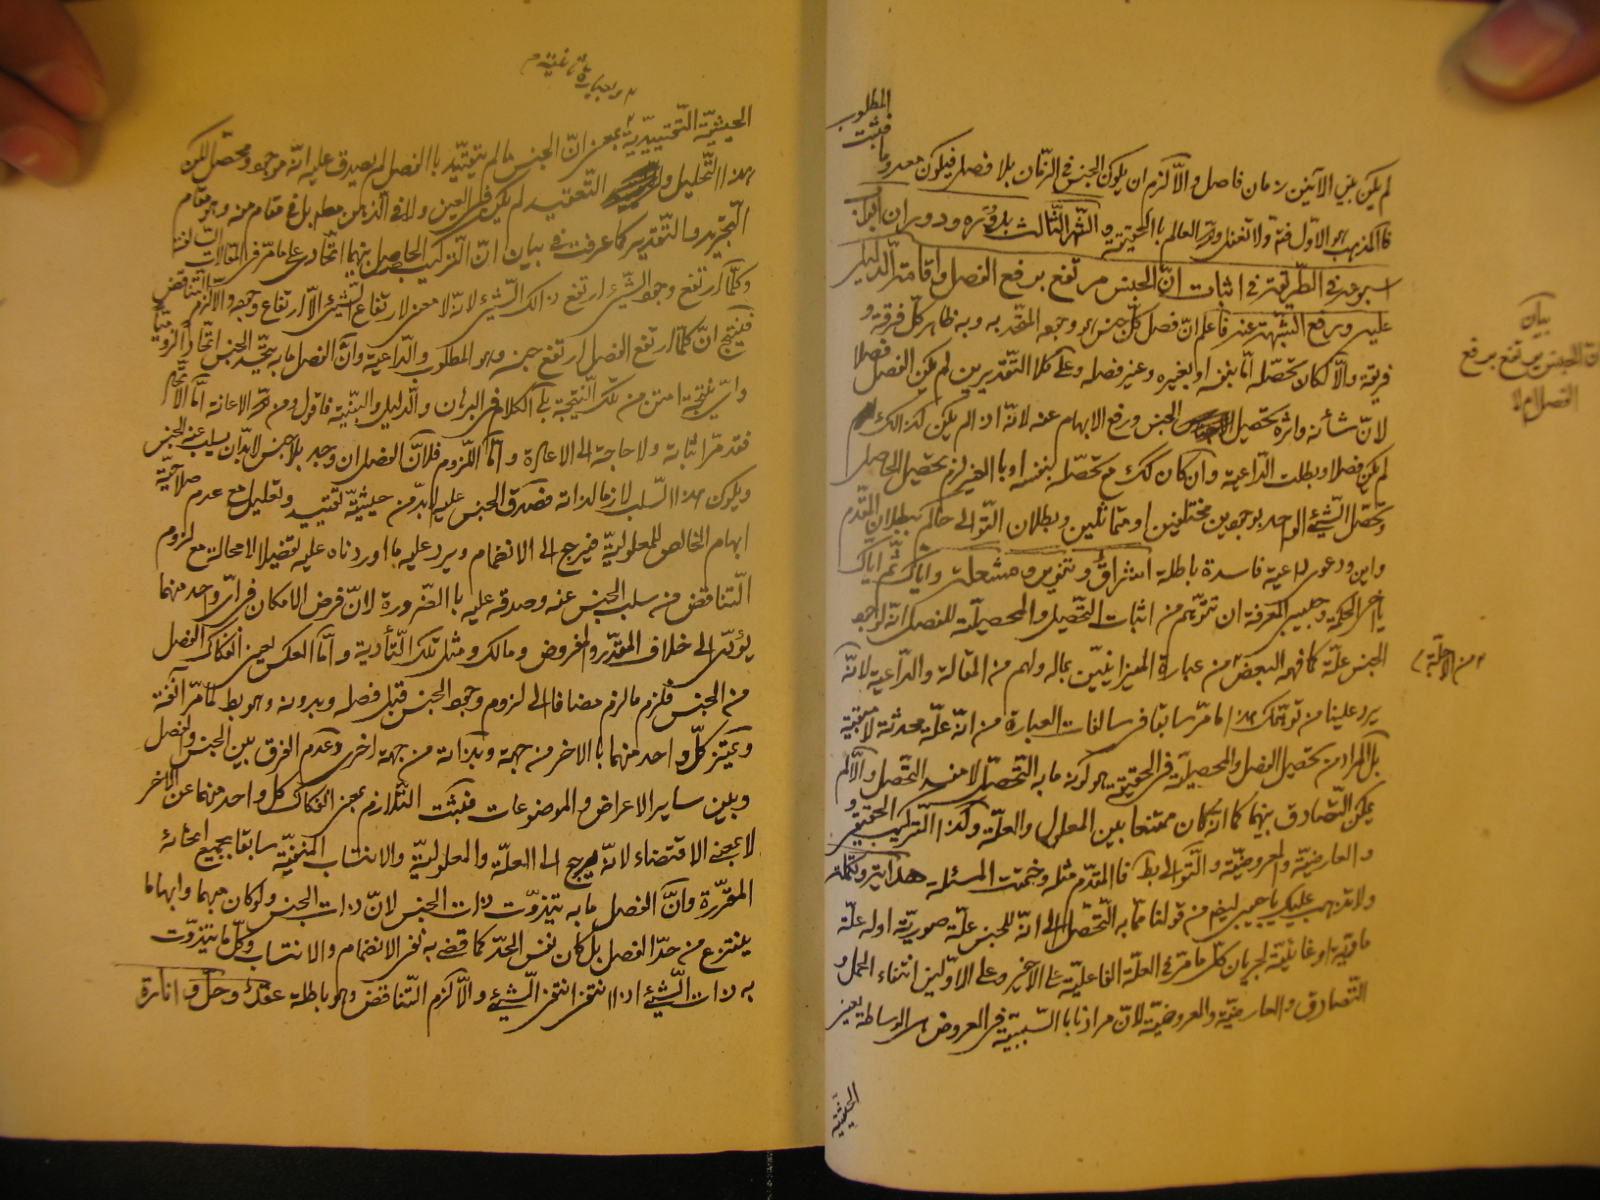 المطلوب
فثبت
لم يكن بين الآنين زمان فاصل والّا لزم ان يكون الجنس فى الزمان بلا فصل فيكون معدوما
فالمذهب هو الاوّل فتمّ ولا تغفل
فى اثبات انّ الجنس مرتفع برفع الفصل واقامة الدليل
عليه ورفع الشبهة عنه فاعلم انّ فصل كلّ جنس هو وجوده المتّحد به وبه ظاهر كل فرقة و
فريقة والّا لكان تحصّله امّا بنفسه او بغيره وغير فصله وعلى كلا التقديرين لم يكن الفصل فصلا
لانّ شأنه واثره تحصيل الجنس ورفع الابهام عنه لانّه اذا لم يكن كذالك
لم يكن فصلا وبطلت الدّاعية وان كان كك مع تحصّله بنفسه او بالغير لزم تحصيل الحاصل
وتحصّل الشّيئ الواحد بوجودين مختلفين او متماثلين وبطلان التّوالى حاكم ببطلان المقدّم
واين ودعوى داعية فاسدة باطلة اشراق وتنوير ومشعلة وايّاك ثمّ ايّاك
يا اخى الحكمة وحبيبى المعرفة ان تتوهّم من اثبات التّحصيل والمحصليّة للفصل انّه لوجود
الجنس علّة كما فهمه البعض من عبارة الميزانيّين بماله ولهم من المقالة والدّاعية لانّه
يرد علينا من توهّمك هذا ما مرّ سابقا فى سالفات العبارة من انّه علّة محدثة لا مبقية
بل المراد من تحصيل الفصل والمحصليّة فى الحقيقة هو كونه ما به التّحصّل لا منه التّحصّل والّا لم
يمكن التّصادق بينهما كما انّه كان ممتنعا بين المعلول والعلّة وكذا التّركيب الحقيقى و
والعارضيّة والمعروضيّة والتّوالى بط فالمقدّم مثله وختمت المسئلة هداية وتكملة
ولا تذهب عليك يا حبيبى ليفهم من قولنا ممّا به التّحصّل الى انّه للجنس علّة صوريّة او له علّة
ماديّة او غائيّة لجريان كلّ ما مرّ فى العلّة الفاعليّة على الاخير وعلى الاوّلين انتفاء الحمل و
التّصادق والعارضيّة والمعروضيّة لانّ مرادنا بالسّببيّة فى العروض هى الوساطة يعنى
الحيثيّة
بيان
ان الجنس مرتفع برفع
الفصل ام لا
من الاجلّة
وبعبارة
الحيثيّة التّقييديّة بمعنى انّ الجنس ما لم يتقيّد بالفصل لم يصدق عليه انّه موجود ومحصّل لكن
هذا التّحليل و التّعقيد لم يكن فى العين ولا فى الذّهن مط بل فى مقام منه وهو مقام
التّجريد والتّقدير كما عرفت فى بيان انّ التّركيب الحاصل بينهما اتّحادى على ما مرّ فى المقالات السّالفة
وكلّما ارتفع وجود الشّيئ ارتفع ذالك الشّيئ لانّه لا معنى لارتفاع الشّيئ الّا ارتفاع وجوده والّا لزم التّناقض
فينتج انّ كلّما ارتفع الفصل ارتفع جنسه وهو المطلوب والدّاعية وانّ الفصل ما به يتّحد الجنس اتّحاد
وايّ نتيجة امتن من تلك النّتيجة يأتى الكلام فى البرهان والدّليل والبيّنة فاقول ومن الاعانة امّا الاوّل
فقد مرّ اثباته ولا حاجة الى الاعادة وامّا اللّزوم فلانّ الفصل ان وجد بلا جنس لابدّ ان يسلب عنه الجنس
ويكون هذا السّلب لازما لذاته فصدق الجنس عليه لابدّ من حيثيّة تقييد وتعليل مع عدم صلاحيّة
ابهام الخالص للمعلوليّة فيرجع الى الانضمام ويرد عليه ما اوردناه عليه تفصيلا لا محالة مع لزوم
التّناقض من سلب الجنس عنه وصدقه عليه بالضّرورة لانّ فرض الامكان فى ايّ واحد منهما
يؤدّى الى خلاف المقدّر والمفروض ومالك ومثل تلك التّأدية وامّا العكس يعنى انفكاك الفصل
من الجنس فلزم ما لزم مضافا الى لزوم وجود الجنس قبل فصله وبدونه وهو بط لما مرّ آنفة
وتميّز كلّ واحد منهما بالاخر من جهة وبذاته من جهة اخرى وعدم الفرق بين الجنس والفصل
وبين ساير الاعراض والموضوعات فثبت التّلازم بمعنى انفكاك كل واحد منهما عن الاخر
لا بمعنى الاقتضاء لانّه يرجع الى العلّة والمعلوليّة والانتساب المنفيّة سابقا بجميع انحائه
المقرّرة وانّ الفصل ما به يتذوّت ذات الجنس لانّ ذات الجنس ولو كان مبهما وابهاما
ينتزع من حدّ الفصل بل كان نفس الحدّ كما قضى به نفى الانضمام والانتساب وكلّ ما يتذوّت
به ذات الشّيئ اذا انتفى انتفى الشّيئ والّا لزم التّناقض وهو باطلة عقد وحلّ وانارة